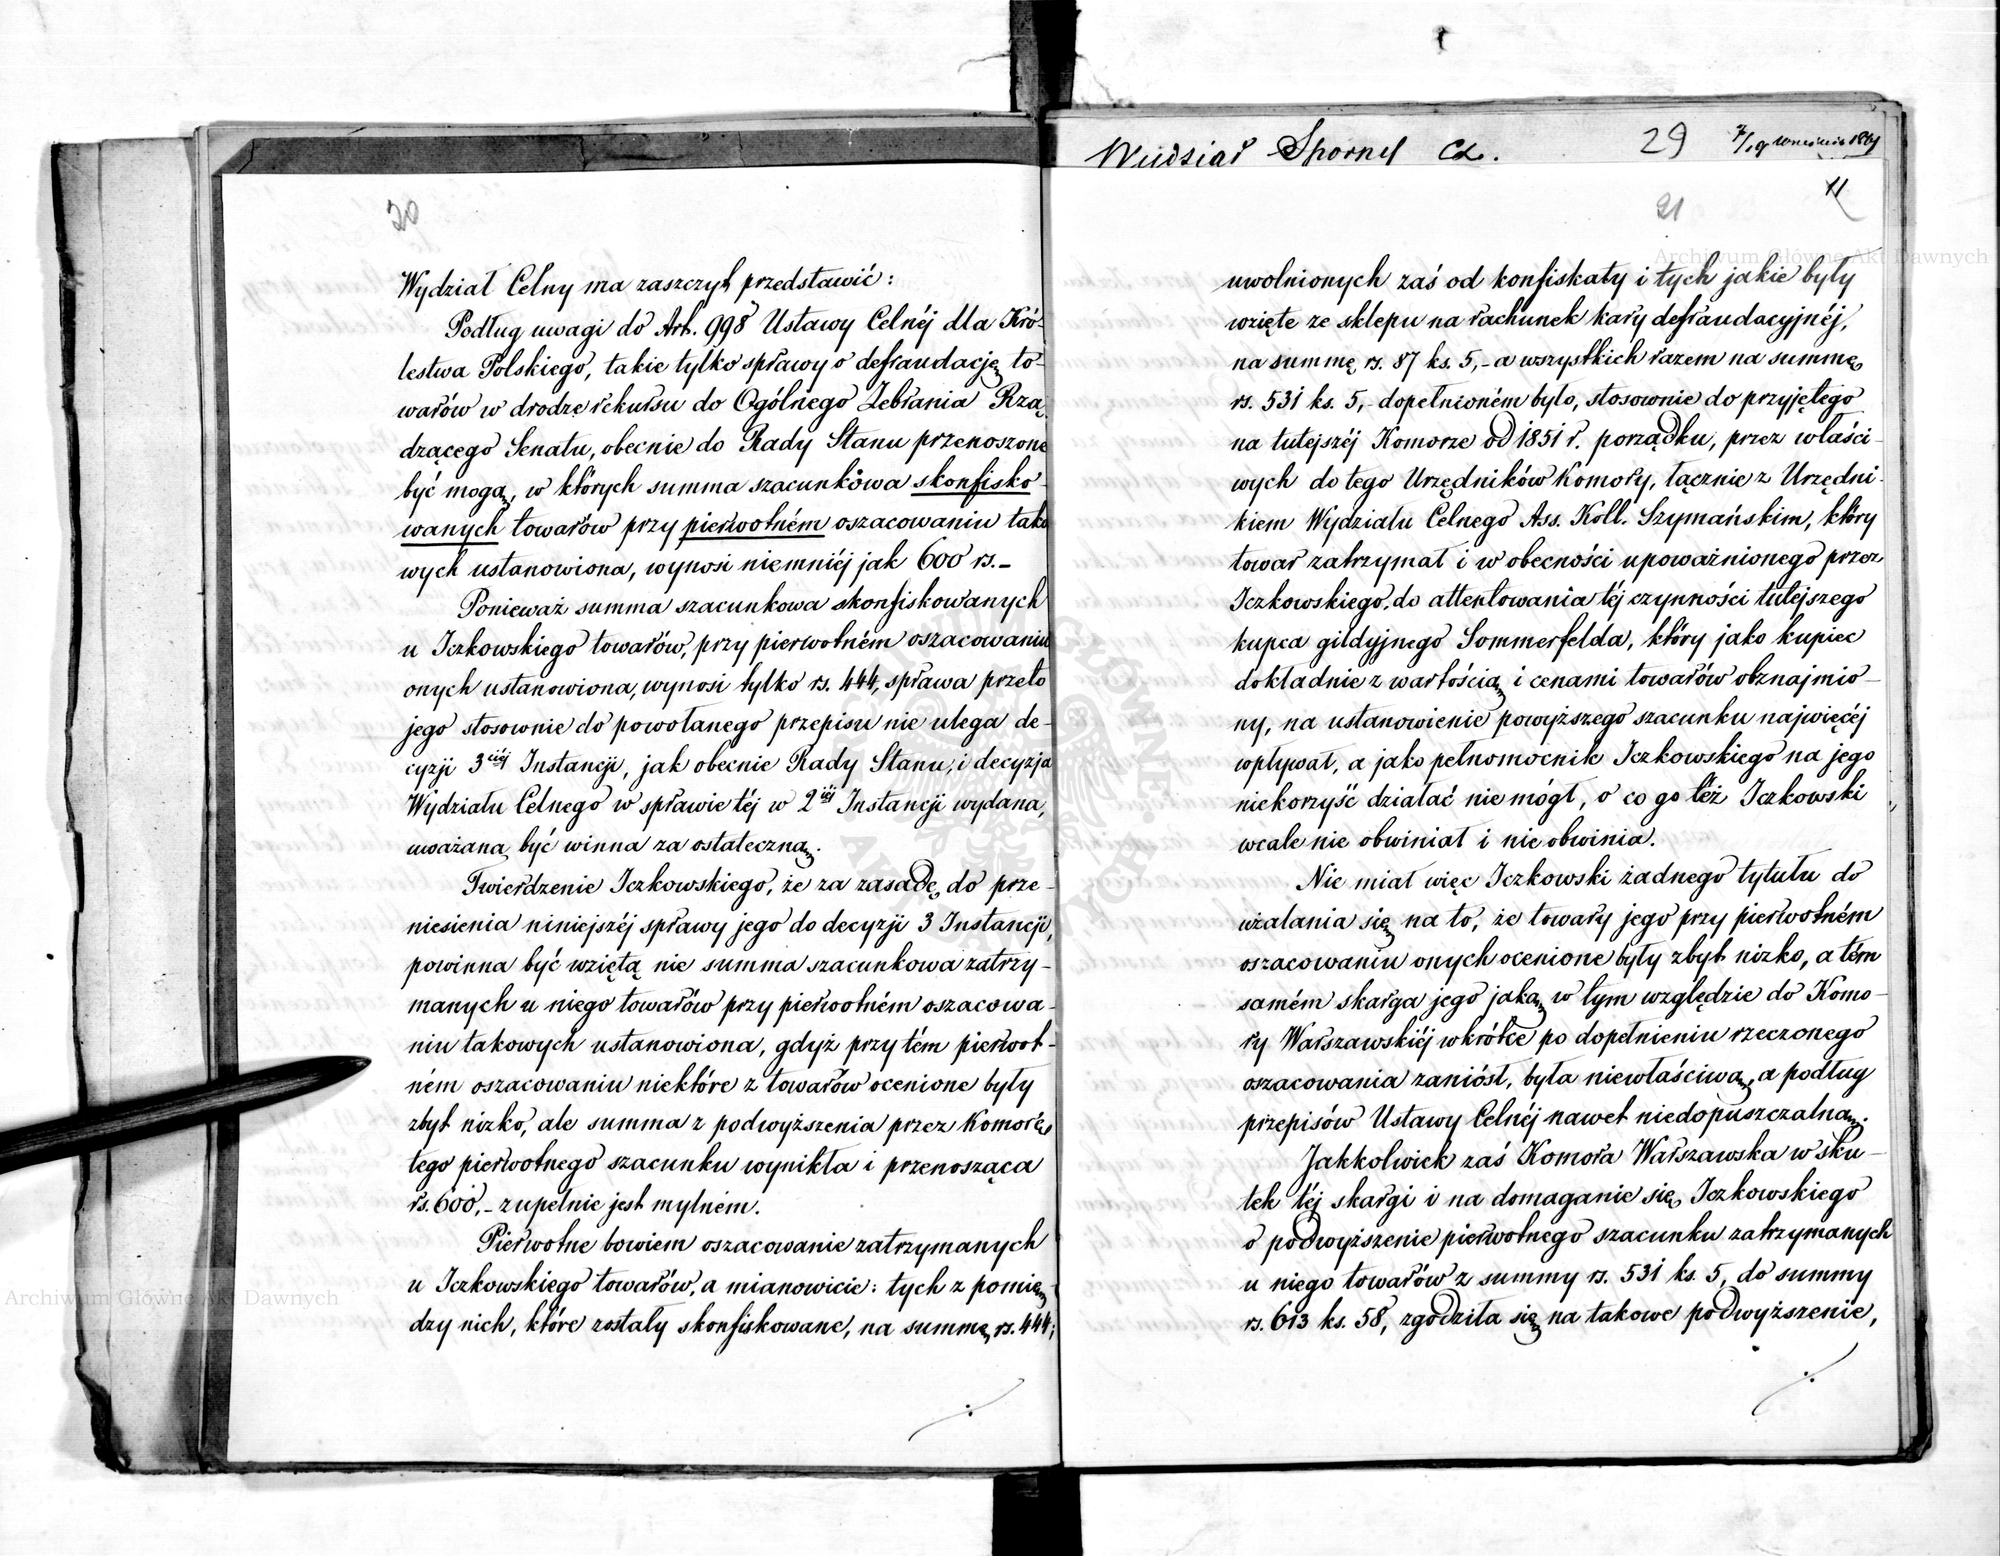 20
Wydział Celny ma zaszczyt przedstawić:
Podług uwagi do Art. 998 Ustawy Celnéj dla Kró-
lestwa Polskiego, takie tylko sprawy o defraudację to-
warów w drodze rekursu do Ogólnego Zebrania Rzą-
dzącego Senatu, obecnie do Rady Stanu przenoszone
być mogą, w których summa szacunkowa skonfisko-
wanych towarów przy pierwotném oszacowaniu tako
wych ustanowiona, wynosi niemniéj jak 600 rs.–
Ponieważ summa szacunkowa skonfiskowanych
u Iczkowskiego towarów, przy pierwotném oszacowaniu
onych ustanowiona, wynosi tylko rs. 444, sprawa przeto
jego stosownie do powołanego przepisu nie ulega de-
cyzji 3ciéj Instancji, jak obecnie Rady Stanu, i decyzja
Wydziału Celnego w sprawie téj w 2iéj Instancji wydana,
uważaną być winna za ostateczną.
Twierdzenie Iczkowskiego, że za zasadę do prze-
niesienia niniejszéj sprawy jego do decyzji 3 Instancji,
powinna być wziętą nie summa szacunkowa zatrzy-
manych u niego towarów przy pierwotném oszacowa-
niu takowych ustanowiona, gdyż przy tém pierwot-
ném oszacowaniu niektóre z towarów ocenione były
zbyt nizko, ale summa z podwyższenia przez Komorę
tego pierwotnego szacunku wynikła i przenosząca
rs. 600,– zupełnie jest mylném.
Pierwotne bowiem oszacowanie zatrzymanych
u Iczkowskiego towarów, a mianowicie: tych z pomię-
dzy nich, które zostały skonfiskowane, na summę rs. 444;
./.
Wydział Sporny
29
7/19 Września 1861
11
21
uwolnionych zaś od konfiskaty i tych jakie były
wzięte ze sklepu na rachunek kary defraudacyjnéj,
na summę rs. 87 ks. 5,– a wszystkich razem na summę
rs. 531 ks. 5,– dopełnioném było, stosownie do przyjętego
na tutejszéj Komorze od 1851 r. porządku, przez właści-
wych do tego Urzędników Komory, łącznie z Urzędni-
kiem Wydziału Celnego Ass. Koll. Szymańskim, który
towar zatrzymał i w obecności upoważnionego przez
Iczkowskiego, do attentowania téj czynności tutejszego
kupca gildyjnego Sommerfelda, który jako kupiec
dokładnie z wartością i cenami towarów obznajmio-
ny, na ustanowienie powyższego szacunku najwięcéj
wpływał, a jako pełnomocnik Iczkowskiego na jego
niekorzyść działać nie mógł, o co go téż Iczkowski
wcale nie obwiniał i nie obwinia.
Nie miał więc Iczkowski żadnego tytułu do
użalania się na to, że towary jego przy pierwotném
oszacowaniu onych ocenione były zbyt nizko, a tém
samém skarga jego jaką w tym względzie do Komo-
ry Warszawskiéj wkrótce po dopełnieniu rzeczonego
oszacowania zaniósł, była niewłaściwą, a podług
przepisów Ustawy Celnéj nawet niedopuszczalną.
Jakkolwiek zaś Komora Warszawska w sku-
tek téj skargi i na domaganie się Iczkowskiego
o podwyższenie pierwotnego szacunku zatrzymanych
u niego towarów z summy rs. 531 ks. 5, do summy
rs. 613 ks. 58, zgodziła się na takowe podwyższenie,
./.
Archiwum Główne Akt Dawnych
Archiwum Główne Akt Dawnych